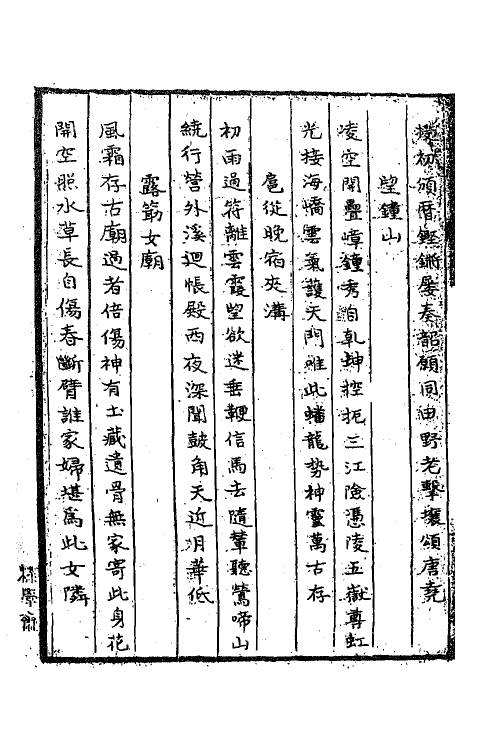 初頒曆鏗鏘屡奏韶願同由野老擊壤頌唐堯
望鍾山
崚空開疊嶂鍾秀自乾坤控扼三江險憑陵五嶽尊虹
光接海嶠雲氣護天門雖此蟠龍勢神靈萬古存
扈從晚宿夾溝
初雨過符離雲霞望欲迷垂鞭信馬去隨輦聽鶯啼山
繞行營外溪迴帳殿西夜深聞鼓角天近月華低
露筯女廟
風霜存古廟過者倍傷神有土藏遺骨無家寄此身花
開空照水草長自傷春斷臂誰家婦堪爲此女隣